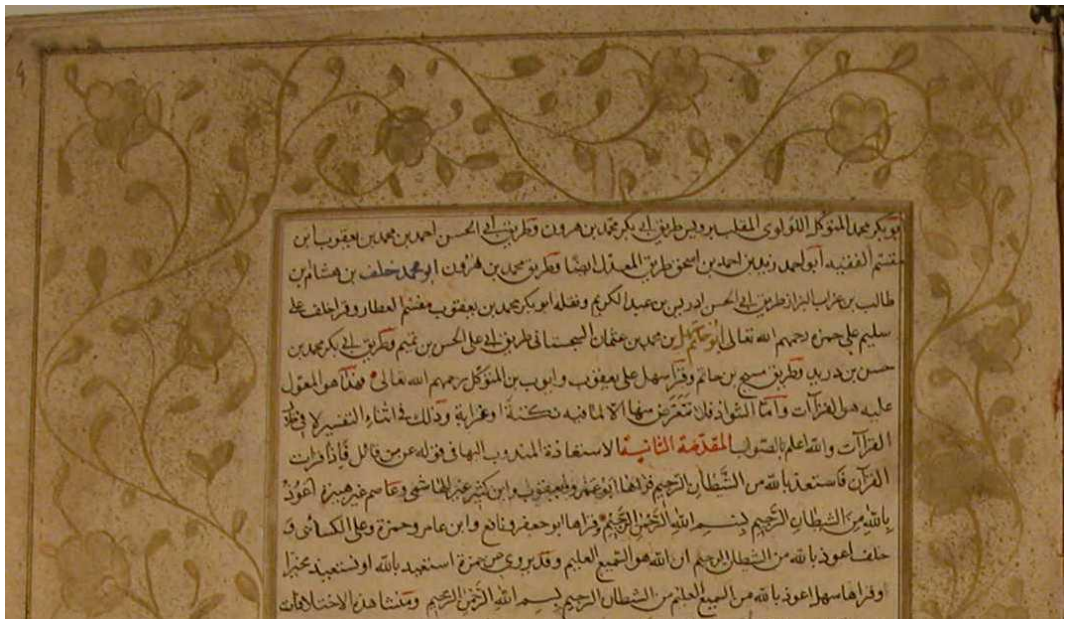 ابو بكر محمد المتوكل اللؤلوى الملقب برويس طريق ابى بكر محمد بن هرون وطريق ابى الحسن احمد بن محمد بن يعقوب ابن
مقسم الفقيه ابو احمد زيد بن احمد بن اسحق طريق المعدل ايضا وطريق محمد بن هرون ابو محمد خلف بن هشام بن
طالب بن غراب البزاز طريق ابى الحسن ادريس بن عبد الكريم ونقله ابو بكر محمد بن يعقوب مقسم العطار وقرا خلف على
سليم على حمزه رحمهم الله تعالى ابو حاتم سهل بن محمد بن عثمان السجستانى طريق ابى على الحسن بن تميم وطريق ابى بكر محمد بن
حسن بن دريد وطريق مسبح بن حاتم وقرا سهل على يعقوب وايوب بن المتوكل رحمهم الله تعالى فهذا هو المعول
عليه من القرآات واما الشواذ فلا نتعرض منها الا لما فيه نكتة او غرابة وذلك فى اثناء التفسير لا فى
القرآات والله اعلم بالصواب المقدمة الثانية الاستعاذة المندوب اليها فى قوله عز من قائل فاذا قرات
القرآن فاستعذ بالله من الشيطان الرجيم قراها ابو عمرو ويعقوب وابن كثير غير الهاشمى وعاصم غير هبيرة اعوذ
بالله من الشيطان الرجيم بسم الله الرحمن الرحيم وقراها ابو جعفر ونافع وابن عامر وحمزة وعلى الكسائى و
خلف اعوذ بالله من الشيطان الرجيم ان الله هو السميع العليم وقد يروى عن حمزة استعيذ بالله او نستعيذ مخيرا
وقراها سهل اعوذ بالله السميع العليم من الشيطان الرجيم بسم الله الرحمن الرحيم ومنشا هذه الاختلافات